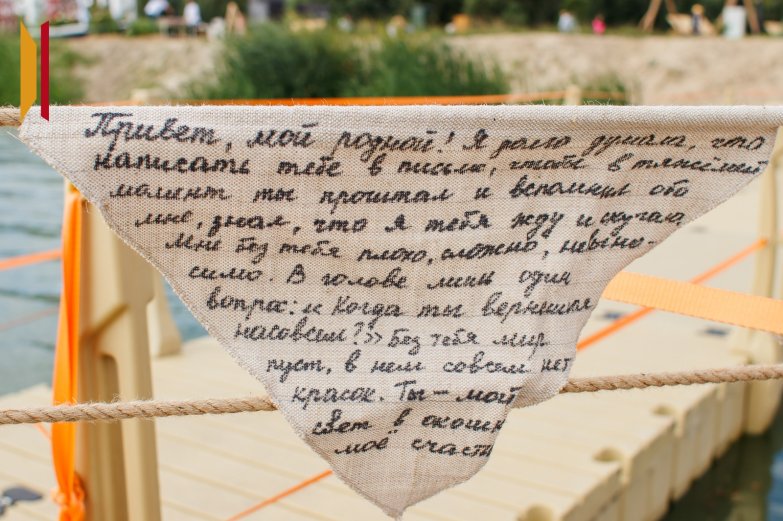 Привет, мой родной! Я долго думала, что
написать тебе в письме, чтобы в тяжёлый
момент ты прочитал и вспомнил обо
мне, знал, что я тебя жду и скучаю
Мне без тебя плохо, сложно, невыно-
симо. В голове лишь один
вопрос: «Когда ты вернёшься
насовсем?» Без тебя мир
пуст, в нем совсем нет
красок. Ты – мой
свет в окошк
моё счасть